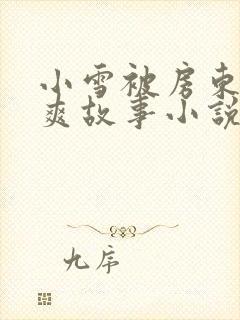 小雪被房东
爽故事小说
九序